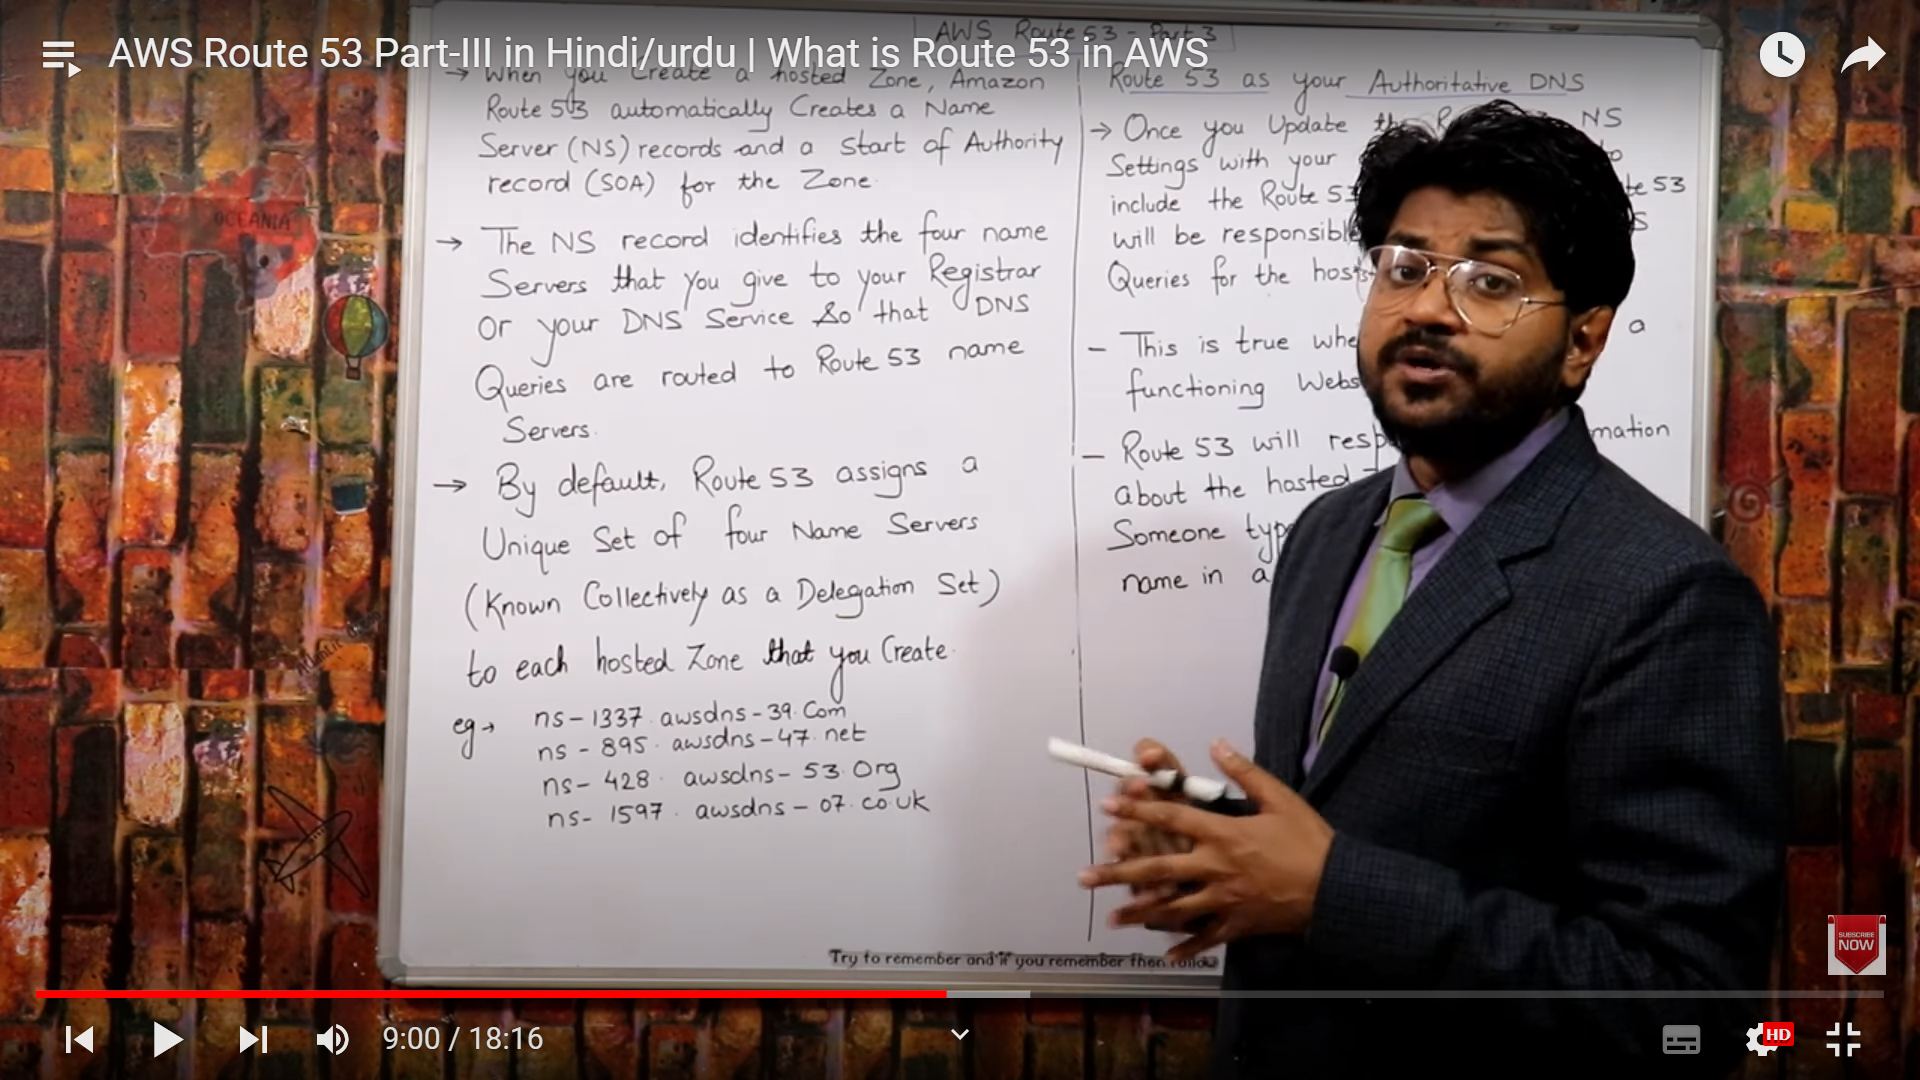 AWS Route 53 Part-III in Hindi/urdu | What is Route 53 in AWS
AWS Route 53 - Part 3
→ When you Create a hosted Zone, Amazon
Route 53 automatically Creates a Name
Server (NS) records and a Start of Authority
record (SOA) for the Zone.
→ The NS record identifies the four name
Servers that you give to your Registrar
Or your DNS Service So that DNS
Queries are routed to Route 53 name
Servers.
→ By default, Route 53 assigns a
Unique Set of four Name Servers
(Known Collectively as a Delegation Set)
to each hosted Zone that you Create.
eg → ns-1337.awsdns-39.Com
ns-895.awsdns-47.net
ns-428.awsdns-53.Org
ns-1597.awsdns-07.co.uk
Route 53 as your Authoritative DNS
→ Once you Update the NS
Settings with your to
include the Route 53 53
will be responsible
Queries for the
- This is true a
functioning
- Route 53 will
about the hosted
Someone
name in a
Try to remember and if you remember then
OCEANIA
SUBSCRIBE
NOW
9:00 / 18:16
HD